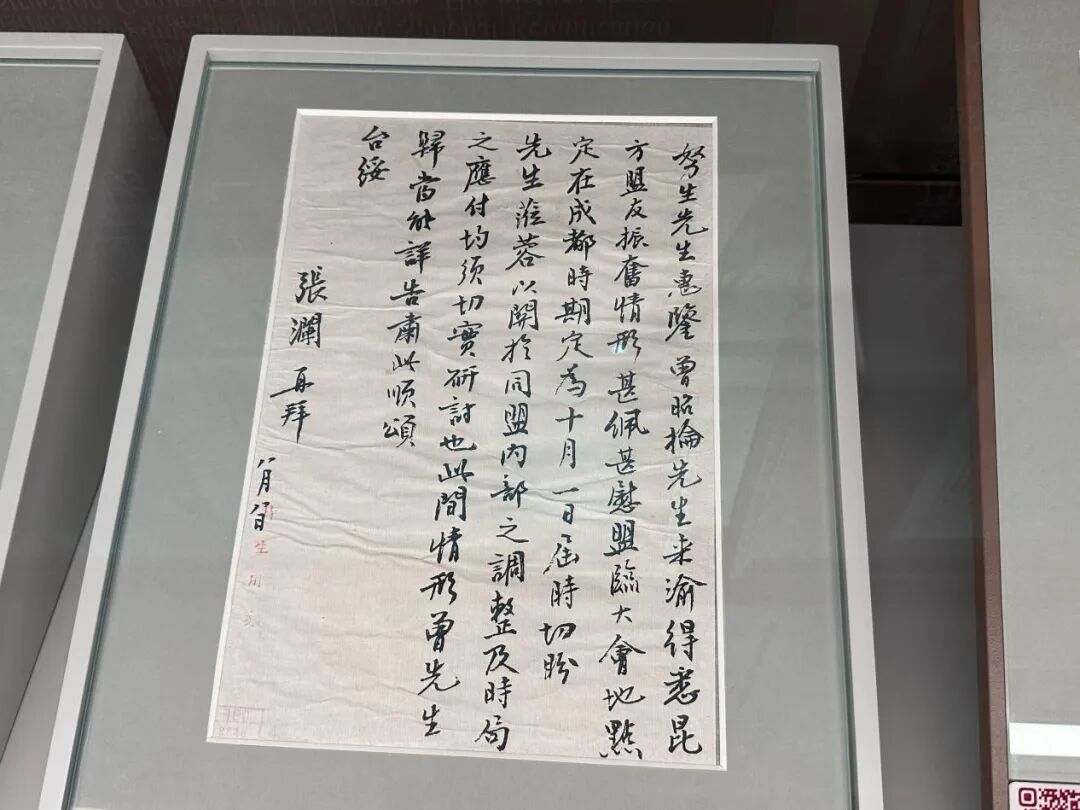 努生先生惠鑒曾昭掄先生来渝得悉昆
方盟友振奮情形甚佩甚慰盟臨大會地點
定在成都時期定為十月一日屆時切盼
先生蒞蓉以關於同盟内部之調整及時局
之應付均須切實研討也此間情形曾先生
歸當能詳告肅此順頌
台綏
張瀾再拜
八月
生用